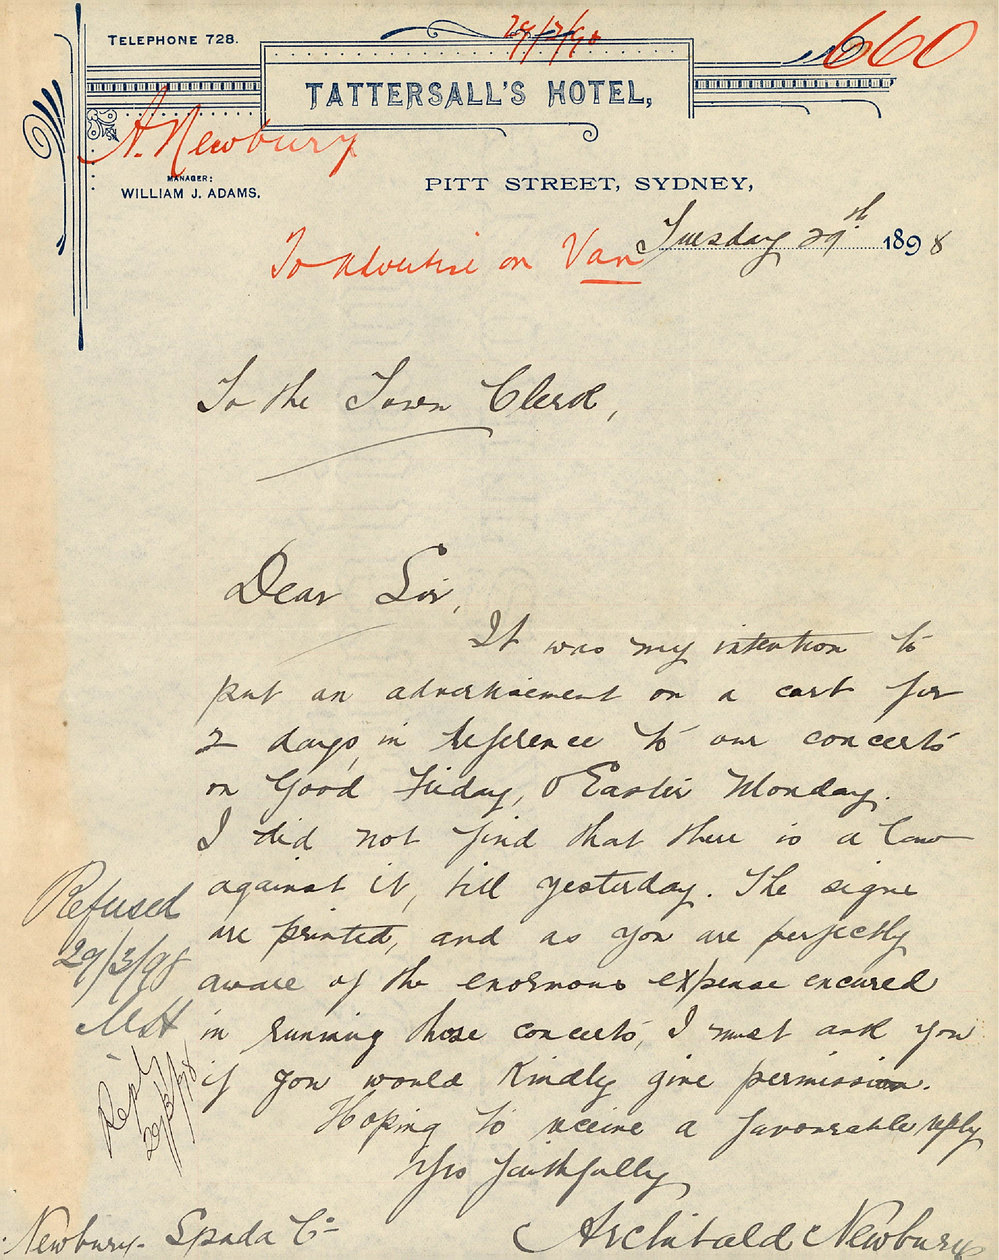 29/3/98
660
TELEPHONE 728.
TATTERSALL'S HOTEL,
A. Newbury
MANAGER:
WILLIAM J. ADAMS.
PITT STREET, SYDNEY,
Tuesday 29th 1898
To advertise on Van
To the Town Clerk,
Dear Sir,
It was my intention to
put an advertisement on a cart for
2 days, in reference to our concerts
on Good Friday, & Easter Monday.
I did not find that there is a law
against it, till yesterday. The signs
are printed, and as you are perfectly
aware of the enormous expense encured
in running these concerts, I must ask you
if you would kindly give permission.
Hoping to receive a favourable reply
Yrs faithfully
Archibald Newbury
Newbury-Spada Co
Refused
29/3/98
Reply
29/3/98